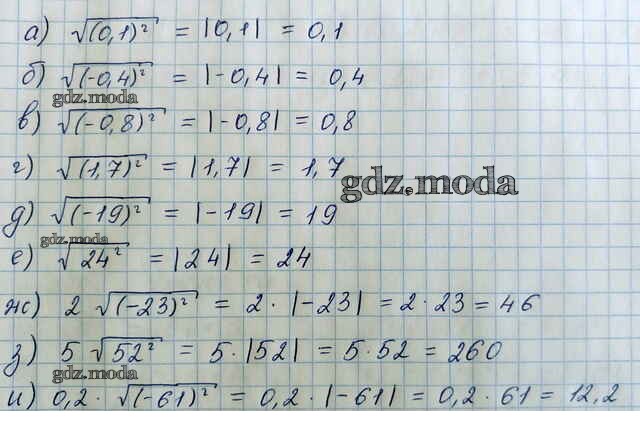 а) √(0,1)² = |0,1| = 0,1
б) √(-0,4)² = |-0,4| = 0,4
gdz.moda
в) √(-0,8)² = |-0,8| = 0,8
г) √(1,7)² = |1,7| = 1,7
gdz.moda
д) √(-19)² = |-19| = 19
gdz.moda
е) √24² = |24| = 24
ж) 2 √(-23)² = 2 · |-23| = 2 · 23 = 46
з) 5 √52² = 5 · |52| = 5 · 52 = 260
gdz.moda
и) 0,2 · √(-61)² = 0,2 · |-61| = 0,2 · 61 = 12,2